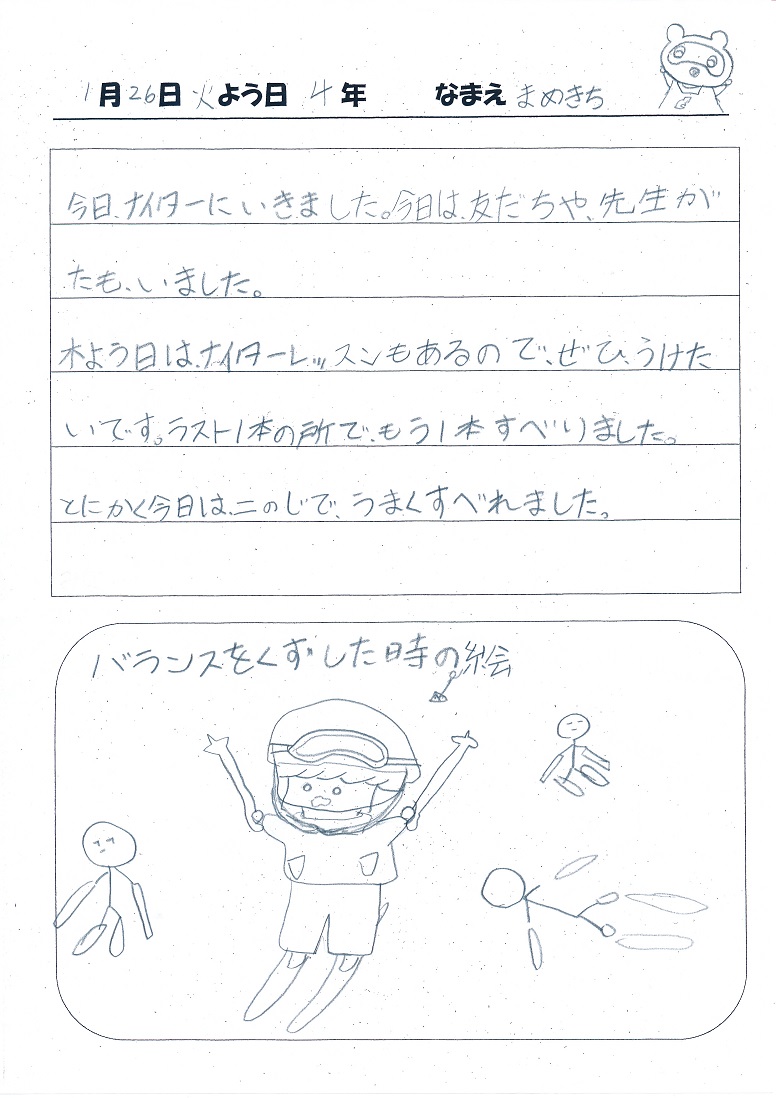 1月26日 火よう日 4年 なまえ まめきち
今日、ナイターにいきました。今日は、友だちや、先生が
たも、いました。
木よう日は、ナイターレッスンもあるので、ぜひ、うけた
いです。ラスト1本の所で、もう1本すべりました。
とにかく今日は、二のじで、うまくすべれました。
バランスをくずした時の絵